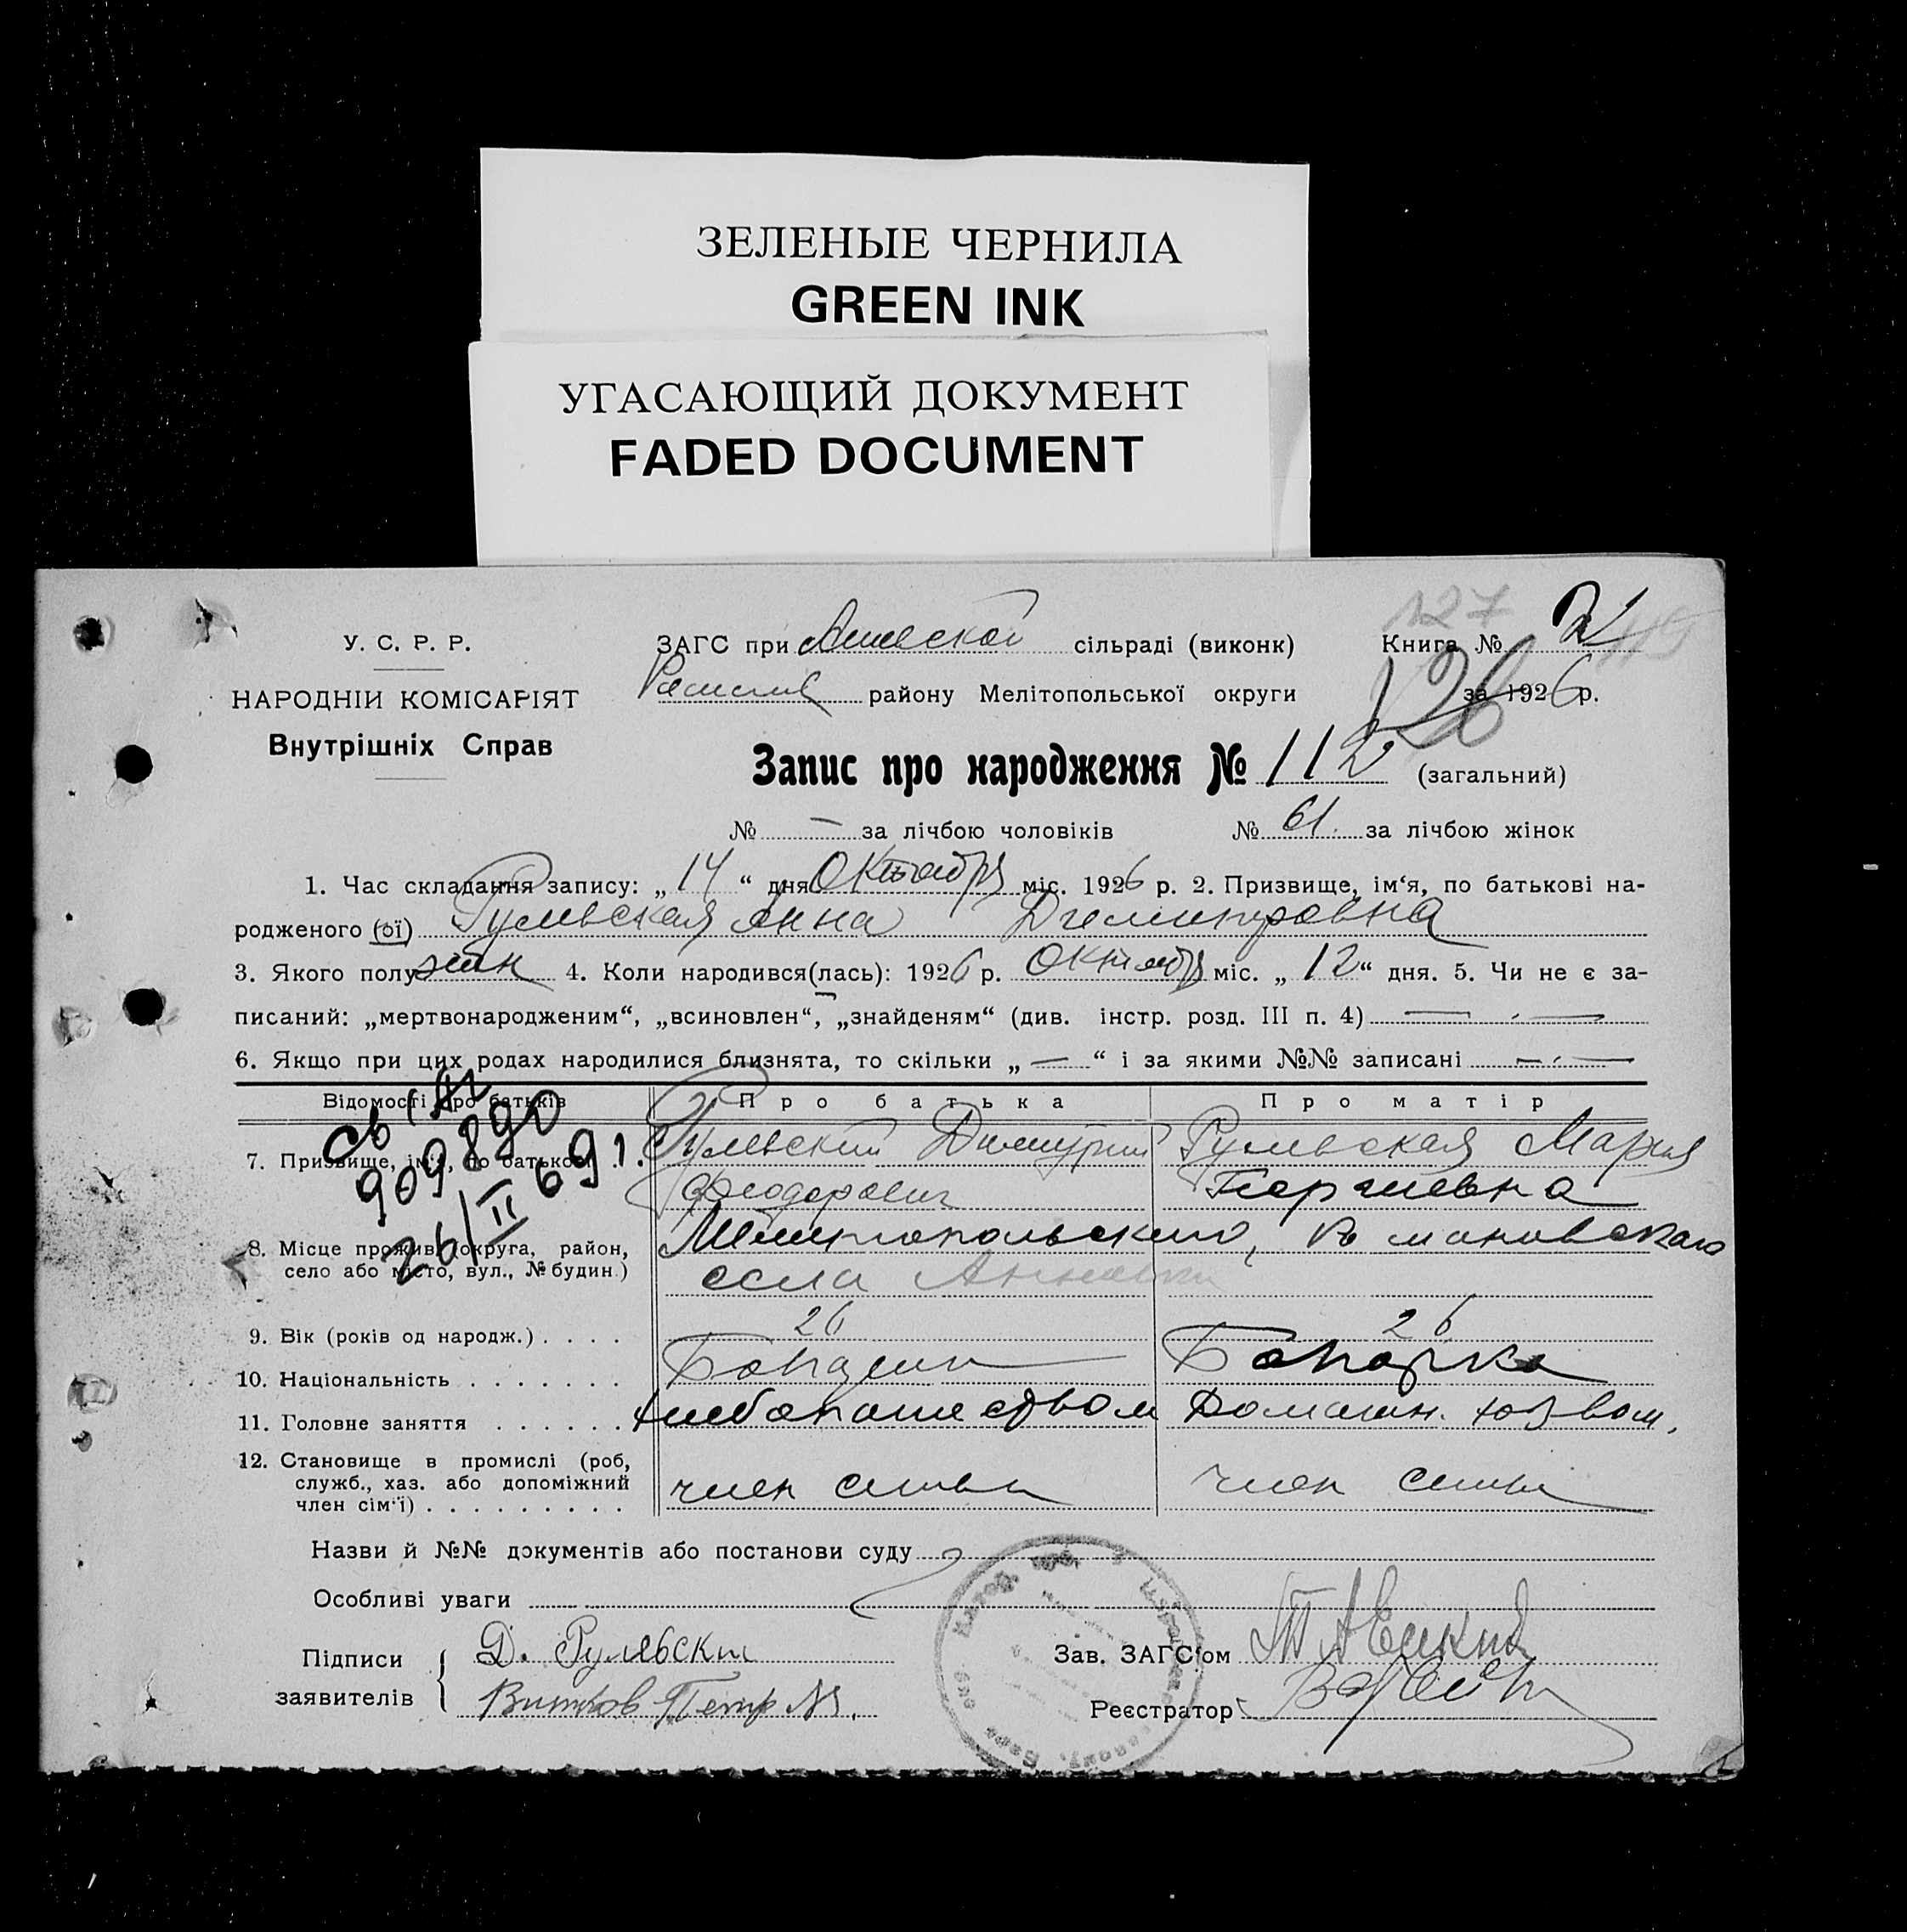 ЗЕЛЕНЫЕ ЧЕРНИЛА
GREEN INK
УГАСАЮЩИЙ ДОКУМЕНТ
FADED DOCUMENT
127
У. С. Р. Р.
ЗАГС при сільраді (виконк) Книга № 2
НАРОДНІЙ КОМІСАРІЯТ
району Мелітопольської округи за 1926 р.
126
Внутрішніх Справ
Запис про народження № 112 (загальний)
№ — за лічбою чоловіків № 61. за лічбою жінок
1. Час складання запису: „14“ дня Октября міс. 1926 р. 2. Призвище, ім‘я, по батькові на-
родженого (ої) Рулевская Анна Дмитровна
3. Якого полу жен 4. Коли народився(лась): 1926 р. Октября міс. „12“ дня. 5. Чи не є за-
писаний: „мертвонародженим“, „всиновлен“, „знайденям“ (див. інстр. розд. III п. 4) — . —
6. Якщо при цих родах народилися близнята, то скільки „—“ і за якими №№ записані — . —
Відомості про батьків Про батька Про матір
7. Призвище, ім‘я, по батькові Рулевский Димитрий Рулевская Мария
Феодорович Георгиевна
св 1 АГ
909890
26/II 691.
8. Місце прожив. (округа, район, Мелитопольского, Романовского
село або місто, вул., № будин.) села Анновки
9. Вік (років од народж.) . . . . 26 26
10. Національність . . . . . . . Болгарин Болгарка
11. Головне заняття . . . . . . хлебопашеством Домашн. хозвом,
12. Становище в промислі (роб,
служб., хаз. або допоміжний член семьи член семьи
член сім‘ї) . . . . . . . . .
Назви й №№ документів або постанови суду
Особливі уваги
Підписи Д. Рулевски Зав. ЗАГС‘ом
заявителів Витков Петр Реєстратор